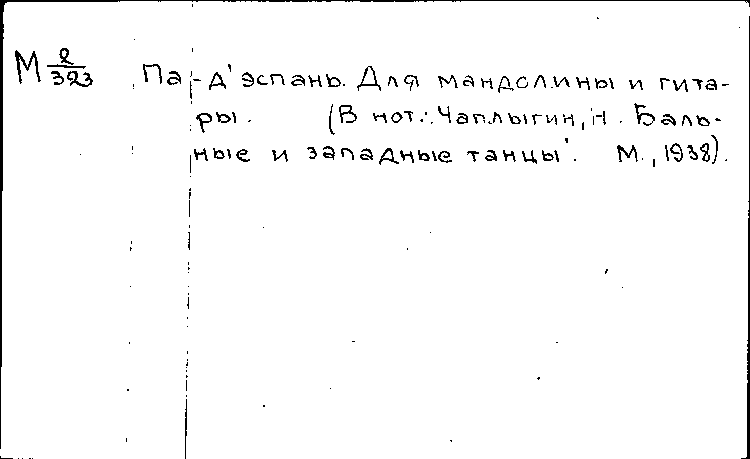 М 2/323 Па-д'эспань. Для мандолины и гита-
ры. (В нот.: Чаплыгин, Н. Баль-
ные и западные танцы. М., 1938).